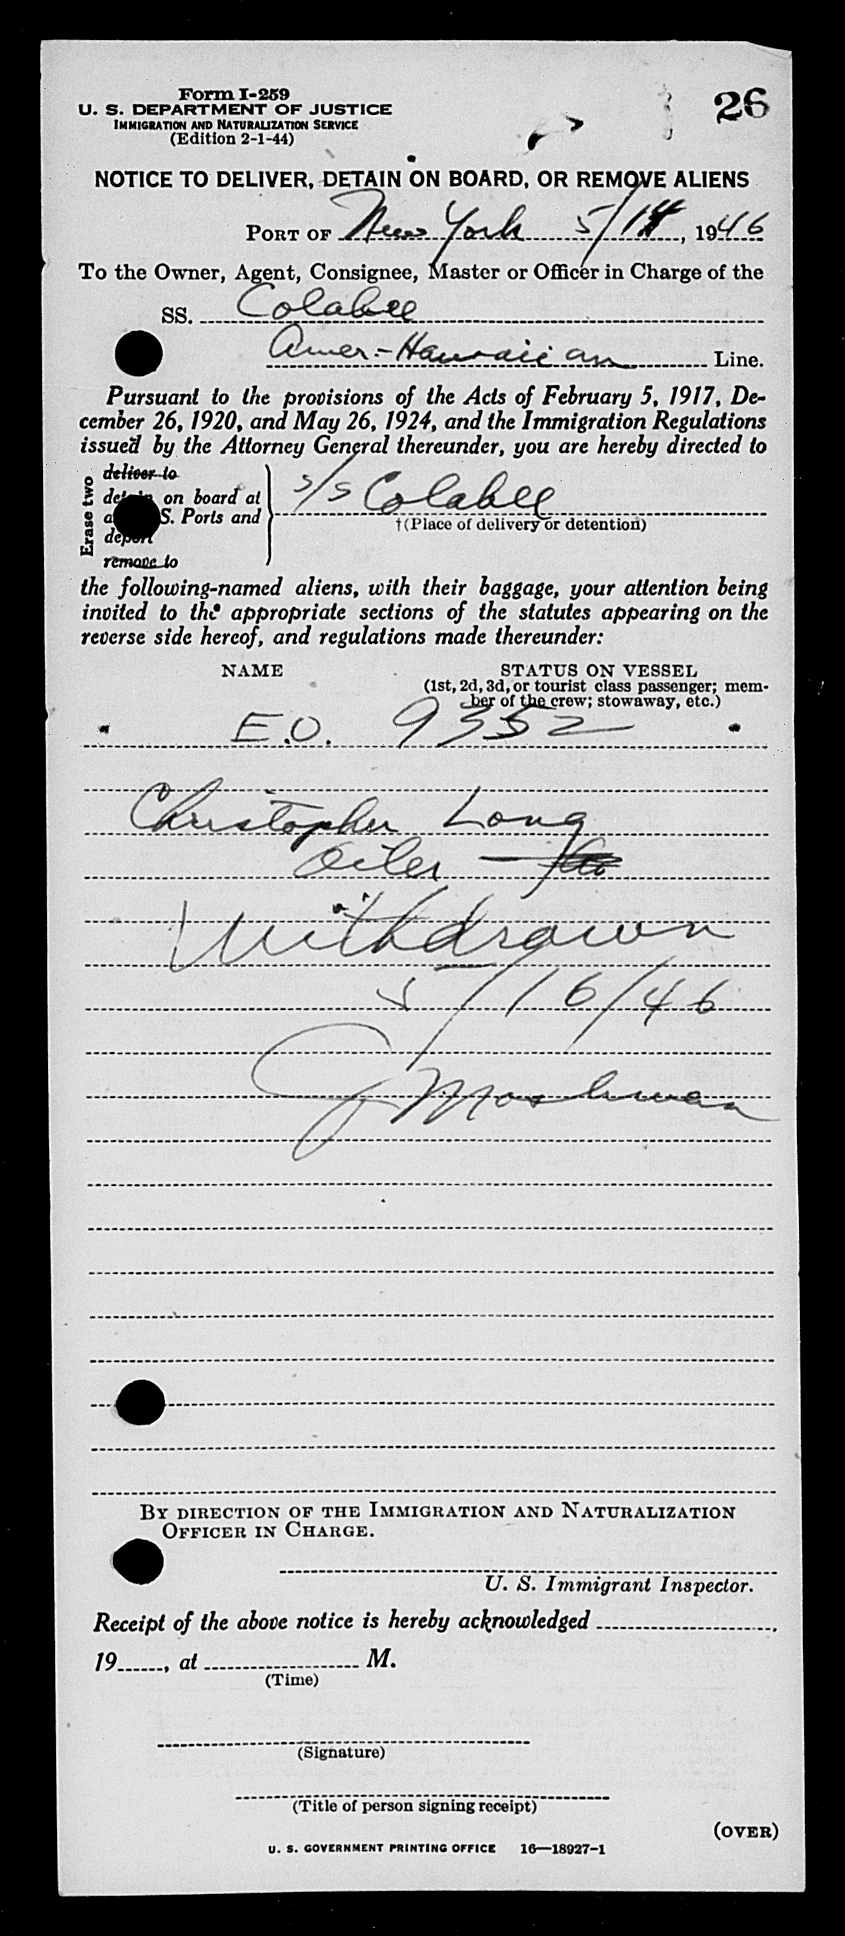 26
Form I-259
U. S. DEPARTMENT OF JUSTICE
IMMIGRATION AND NATURALIZATION SERVICE
(Edition 2-1-44)
NOTICE TO DELIVER, DETAIN ON BOARD, OR REMOVE ALIENS
PORT OF New York 5/14, 1946
To the Owner, Agent, Consignee, Master or Officer in Charge of the
SS. Colabee
Amer.-Hawaiian Line.
Pursuant to the provisions of the Acts of February 5, 1917, De-
cember 26, 1920, and May 26, 1924, and the Immigration Regulations
issued by the Attorney General thereunder, you are hereby directed to
Erase two
deliver to
detain on board at
S. Ports and
deport
remove to
s/s Colabee
†(Place of delivery or detention)
the following-named aliens, with their baggage, your attention being
invited to the appropriate sections of the statutes appearing on the
reverse side hereof, and regulations made thereunder:
NAME STATUS ON VESSEL
(1st, 2d, 3d, or tourist class passenger; mem-
ber of the crew; stowaway, etc.)
E.O. 9352
Christopher Long
Oiler —
Withdrawn
5/16/46
J Moshman
BY DIRECTION OF THE IMMIGRATION AND NATURALIZATION
OFFICER IN CHARGE.
U. S. Immigrant Inspector.
Receipt of the above notice is hereby acknowledged
19, at M.
(Time)
(Signature)
(Title of person signing receipt)
(OVER)
U. S. GOVERNMENT PRINTING OFFICE 16—18927-1